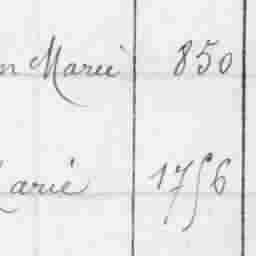 n Marié 850
Marié 1756